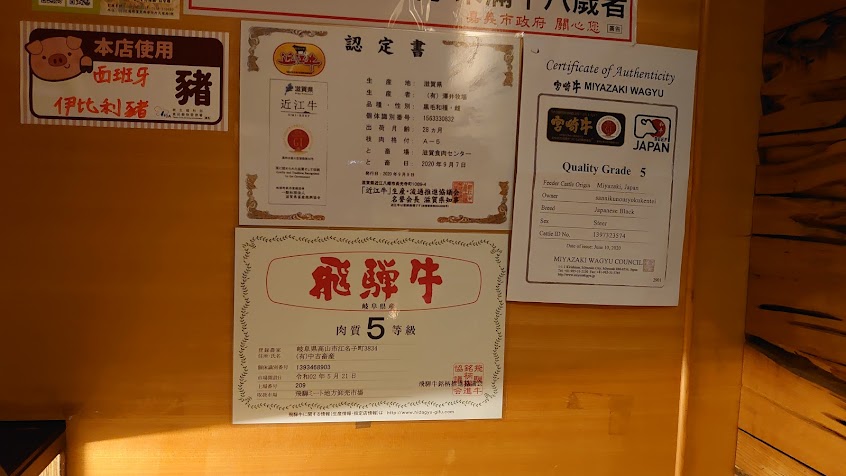 滿十八歲者
嘉義市政府 關心您
本店使用
西班牙
伊比利豬
豬
認定書
近江牛
滋賀県
近江牛
生産地：滋賀県
生産者：（有）澤井牧場
品種・性別：黒毛和種・雌
個体識別番号：1563330832
出荷月齢：28ヵ月
枝肉格付：A－5
と畜場：滋賀食肉センター
と畜日：2020年9月7日
「近江牛」生産・流通推進協議会
名誉会長 滋賀県知事
Certificate of Authenticity
宮崎牛 MIYAZAKI WAGYU
宮崎牛
BEEF
JAPAN
Quality Grade 5
Feeder Cattle Origin Miyazaki, Japan
Owner
Breed Japanese Black
Sex Steer
Cattle ID No. 1397323574
Date of issue: June 10, 2020
MIYAZAKI WAGYU COUNCIL
飛騨牛
岐阜県産
肉質5等級
岐阜県高山市江名子町3834
(有)中古畜産
個体識別番号 1393468903
令和02年5月21日
上場番号 209
飛騨ミート地方卸売市場
飛騨牛銘柄推進協議会
http://www.hidagyu-gifu.com